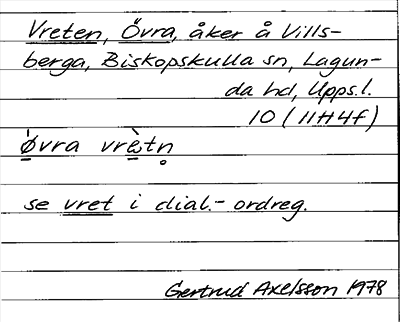 Vreten, Övra, åker å Vills-
berga, Biskopskulla sn, Lagun-
da hd, Upps.l.
10 (11H4f)
ø̀vra vrètn̥
se vret i dial.-ordreg.
Gertrud Axelsson 1978